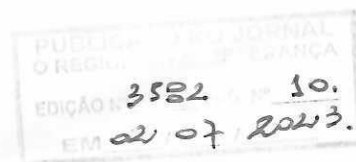 PUBLICADO NO JORNAL
O REGIONAL ESPERANÇA
EDIÇÃO Nº 3582 Nº 10.
EM 02 / 07 / 2023.